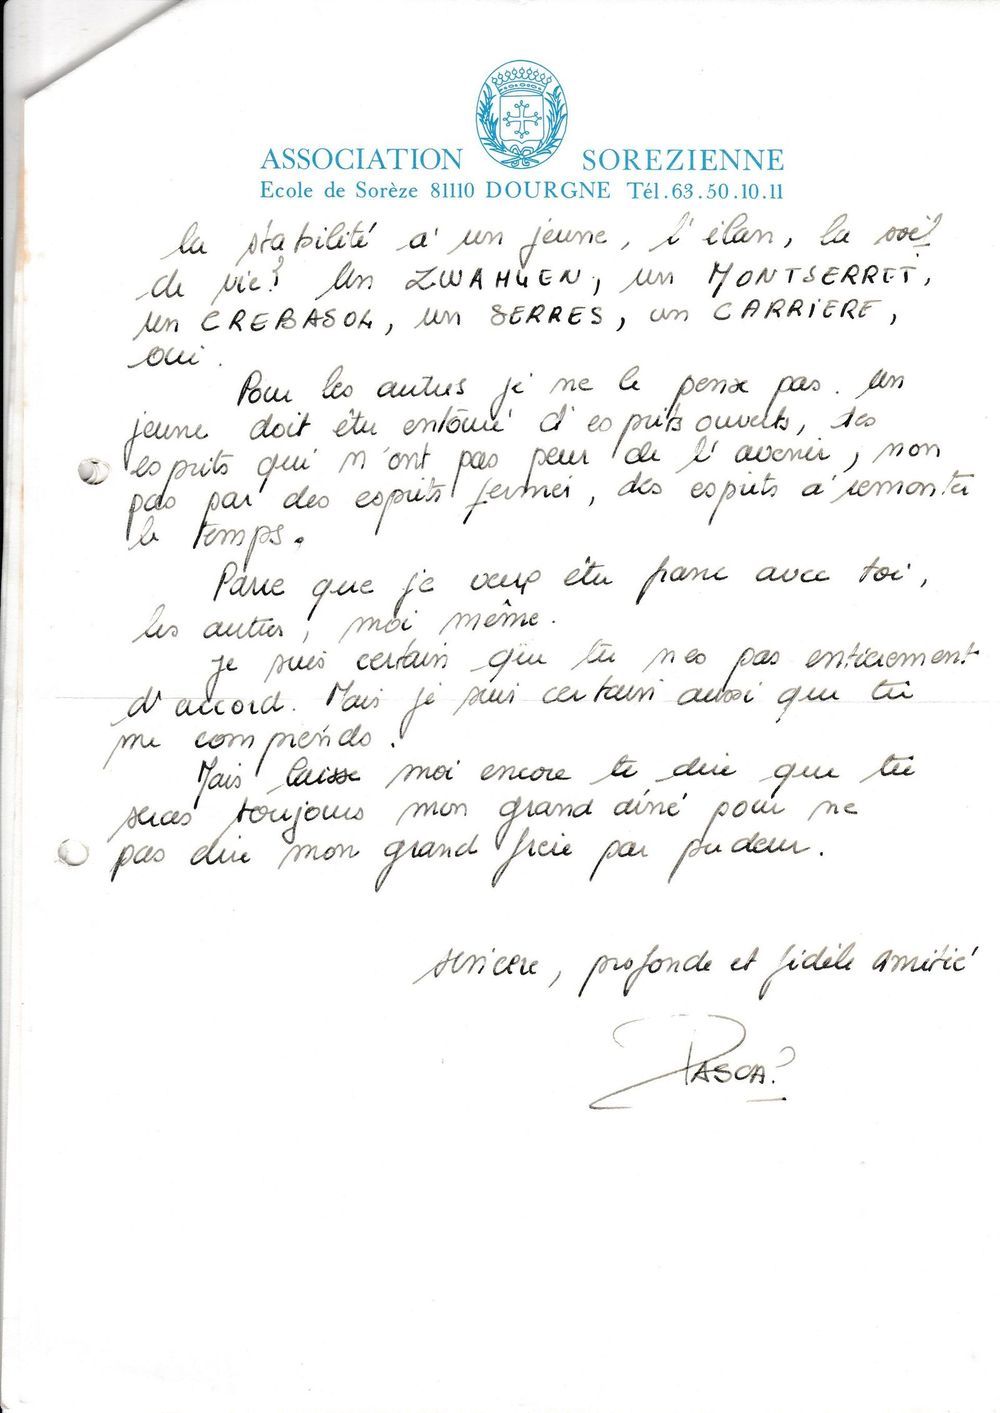 ASSOCIATION SOREZIENNE
Ecole de Sorèze 81110 DOURGNE Tél.63.50.10.11
la stabilité à un jeune, l'élan, la soif
de vie? Un ZWAHLEN, un MONTSERRET,
un CREBASOL, un SERRES, un CARRIERE,
oui.
Pour les autres je ne le pense pas. Un
jeune doit être entouré d'esprits ouverts, des
esprits qui n'ont pas peur de l'avenir, non
pas par des esprits fermés, des esprits à remonter
le temps.
Parce que je veux être franc avec toi,
les autres, moi même.
Je suis certain que tu n'es pas entièrement
d'accord. Mais je suis certain aussi que tu
me comprends.
Mais laisse moi encore te dire que tu
seras toujours mon grand aîné pour ne
pas dire mon grand frère par pudeur.
sincère, profonde et fidèle amitié
PASCAL